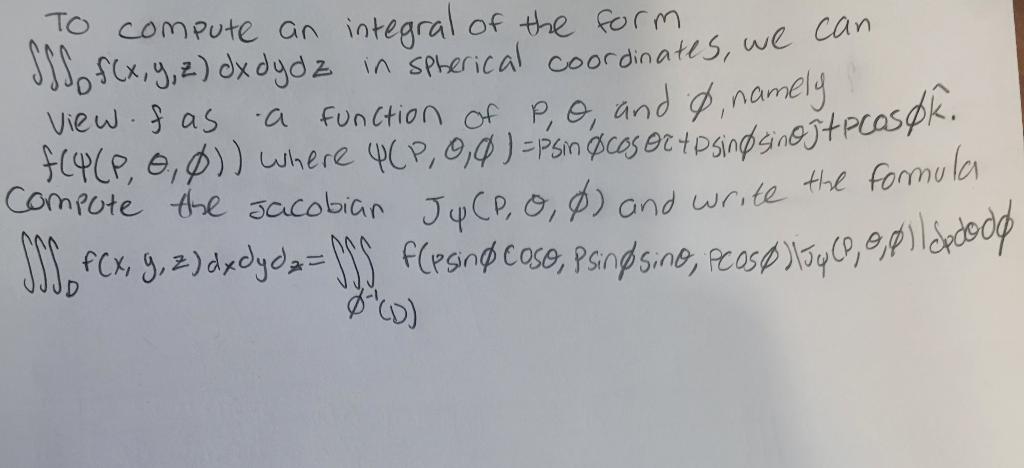 To compute an integral of the form
∭_D f(x,y,z) dxdydz in spherical coordinates, we can
view f as a function of ρ, θ, and φ, namely
f(ψ(ρ, θ, φ)) where ψ(ρ, θ, φ) = ρsinφcosθî + ρsinφsinθĵ + ρcosφk̂.
Compute the Jacobian J_ψ(ρ, θ, φ) and write the formula
∭_D f(x, y, z) dxdydz = ∭ f(ρsinφcosθ, ρsinφsinθ, ρcosφ)|J_ψ(ρ, θ, φ)|dρdθdφ
φ⁻¹(D)